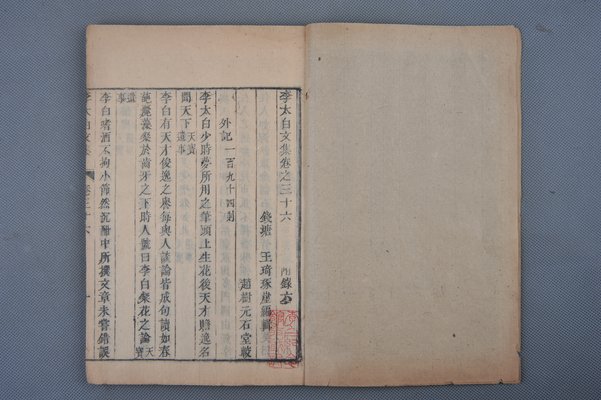 李太白文集卷之三十六
附錄六
錢塘 王琦琢崖編輯
趙樹元石堂較
外記一百九十四則
李太白少時夢所用之筆頭上生花後天才贍逸名
聞天下天寶遺事
李白有天才俊逸之譽每與人談論皆成句讀如春
葩麗藻粲於齒牙之下時人號曰李白粲花之論天寶
遺事
李白嗜酒不拘小節然沉酣中所撰文章未嘗錯誤
李太白文集 卷三十六